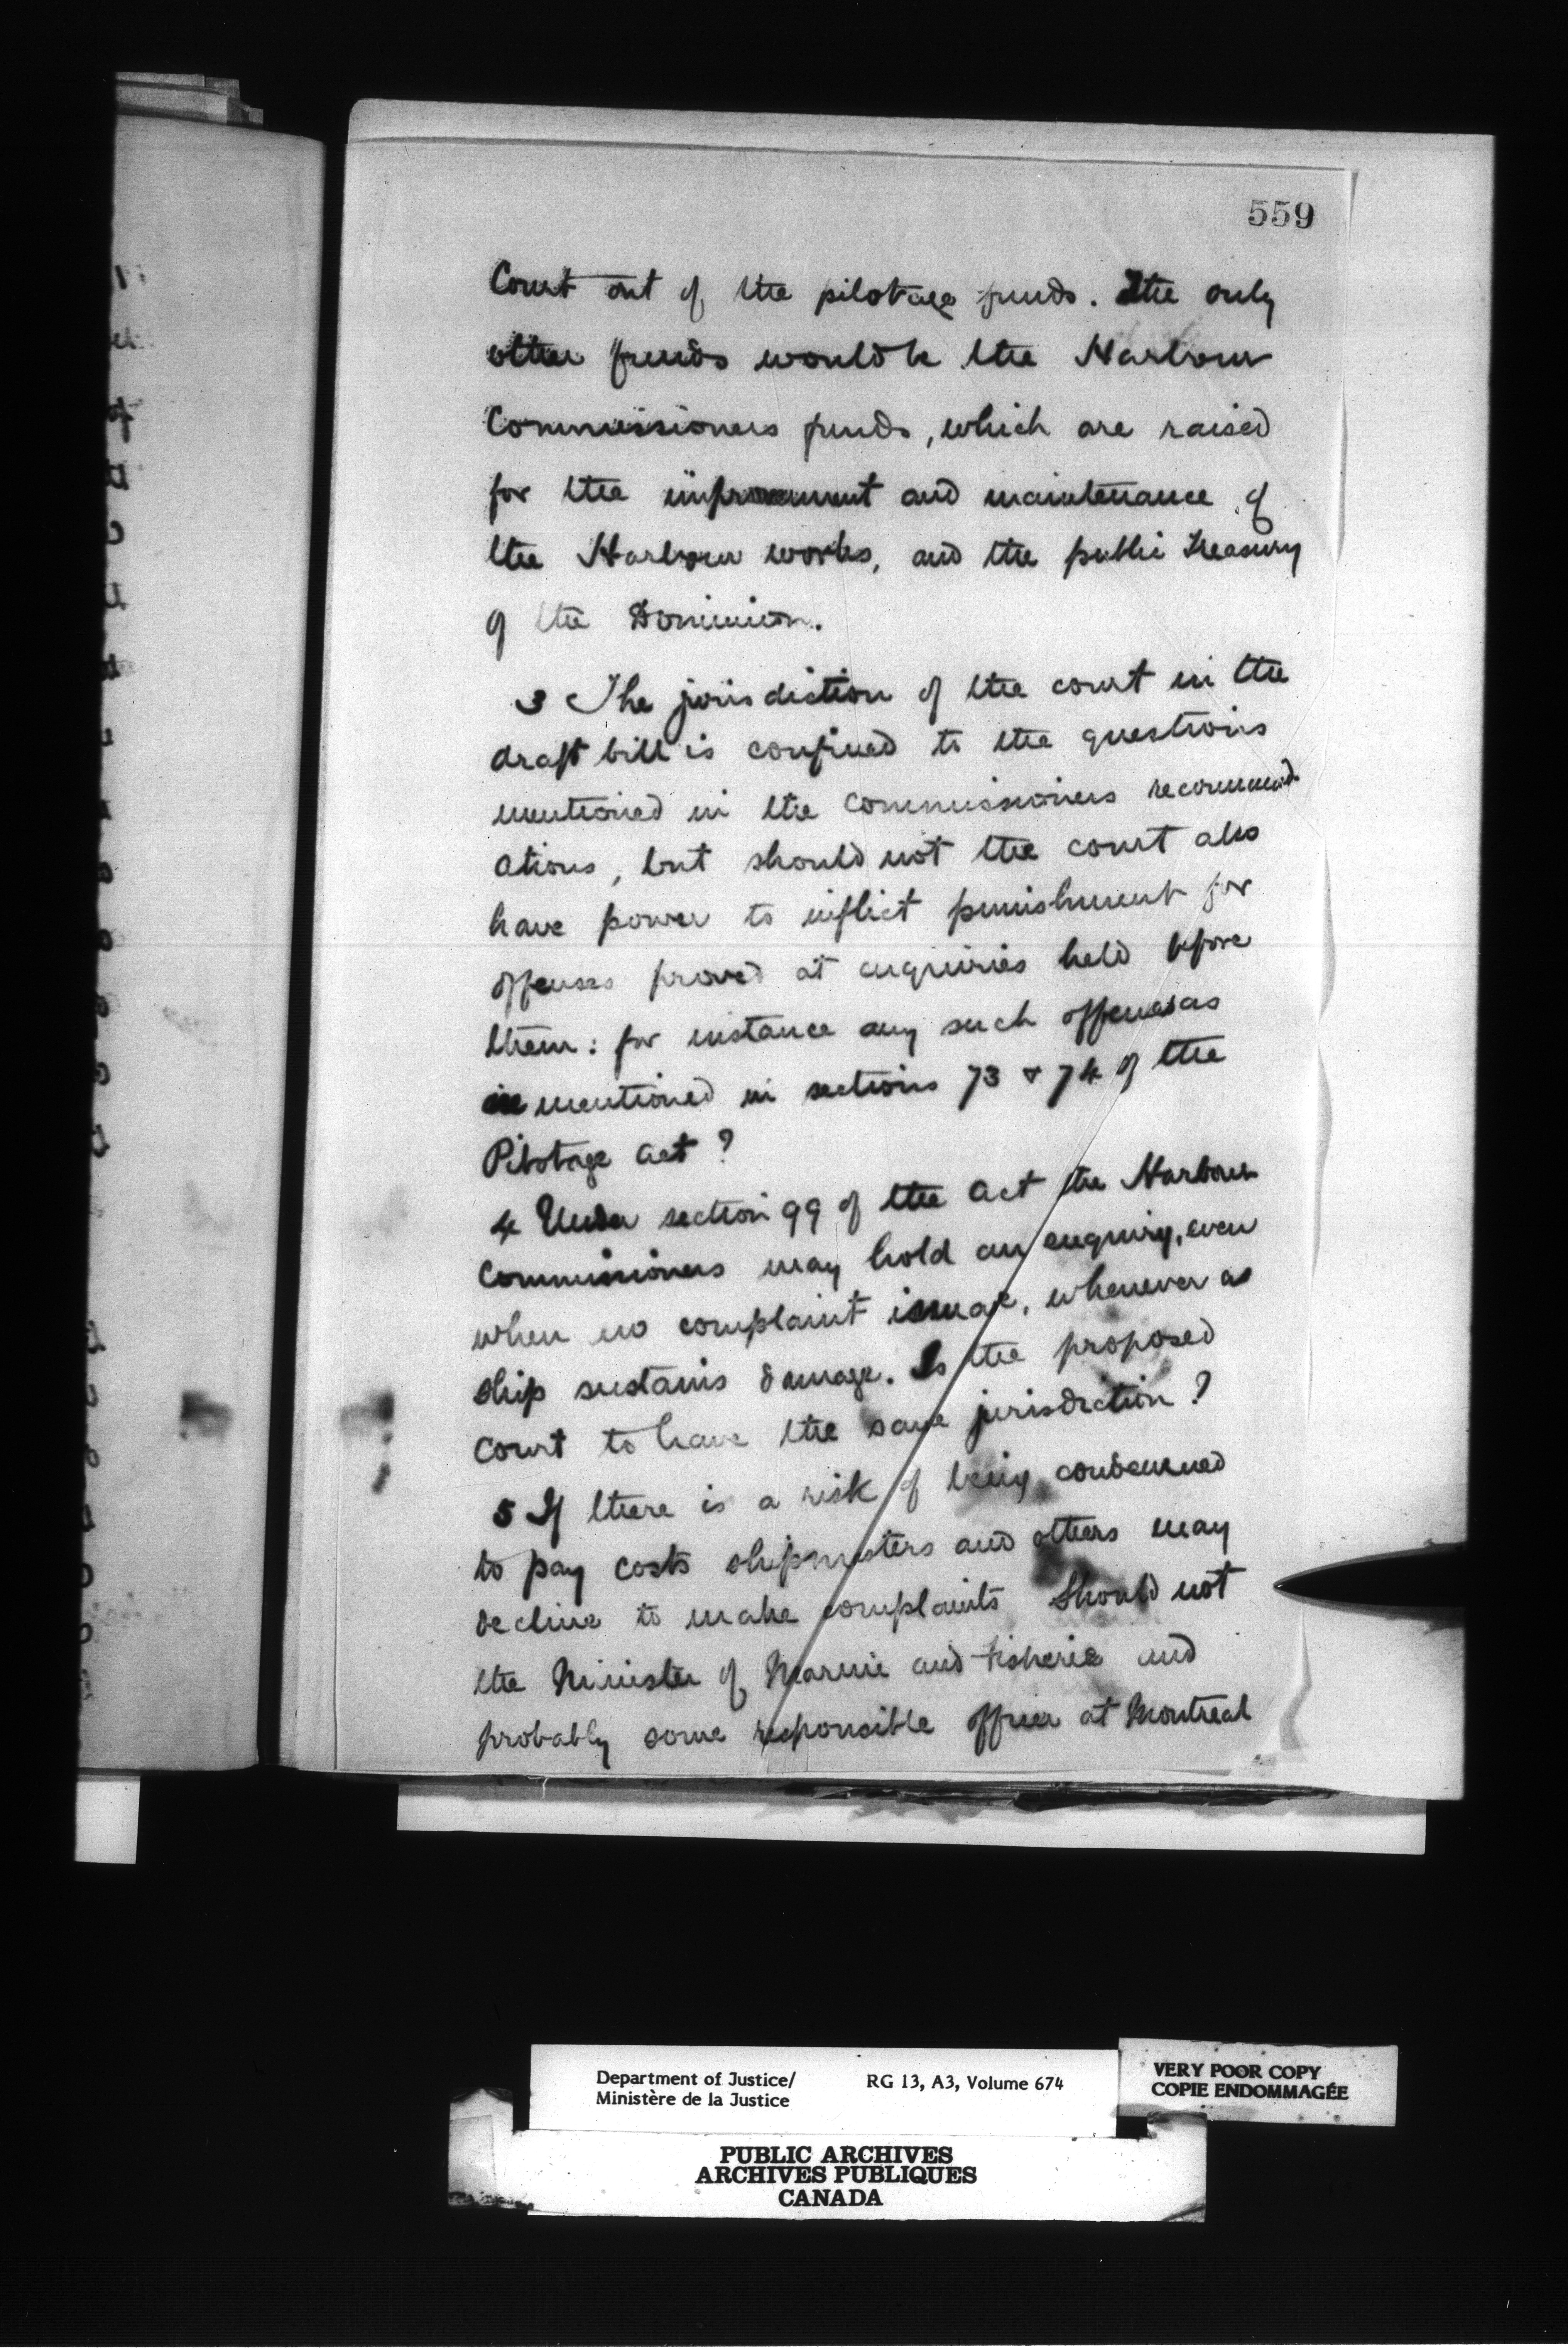 559
Court out of the pilotage funds. The only
other funds would be the Harbour
Commissioners funds, which are raised
for the improvement and maintenance of
the Harbour works, and the public Treasury
of the Dominion.
3 The jurisdiction of the court in the
draft bill is confined to the questions
mentioned in the Commissioners recommend
ations, but should not the court also
have power to inflict punishment for
offenses proved at enquiries held before
them: for instance any such offenses as
mentioned in sections 73 & 74 of the
Pilotage Act?
4 Under section 99 of the Act the Harbour
Commissioners may hold an enquiry, even
when no complaint is made, whenever a
ship sustains damage. Is the proposed
court to have the same jurisdiction?
5 If there is a risk of being condemned
to pay costs shipmasters and others may
decline to make complaints Should not
the Minister of Marine and Fisheries and
probably some responsible officer at Montreal
Department of Justice/
Ministère de la Justice
RG 13, A3, Volume 674
VERY POOR COPY
COPIE ENDOMMAGÉE
PUBLIC ARCHIVES
ARCHIVES PUBLIQUES
CANADA